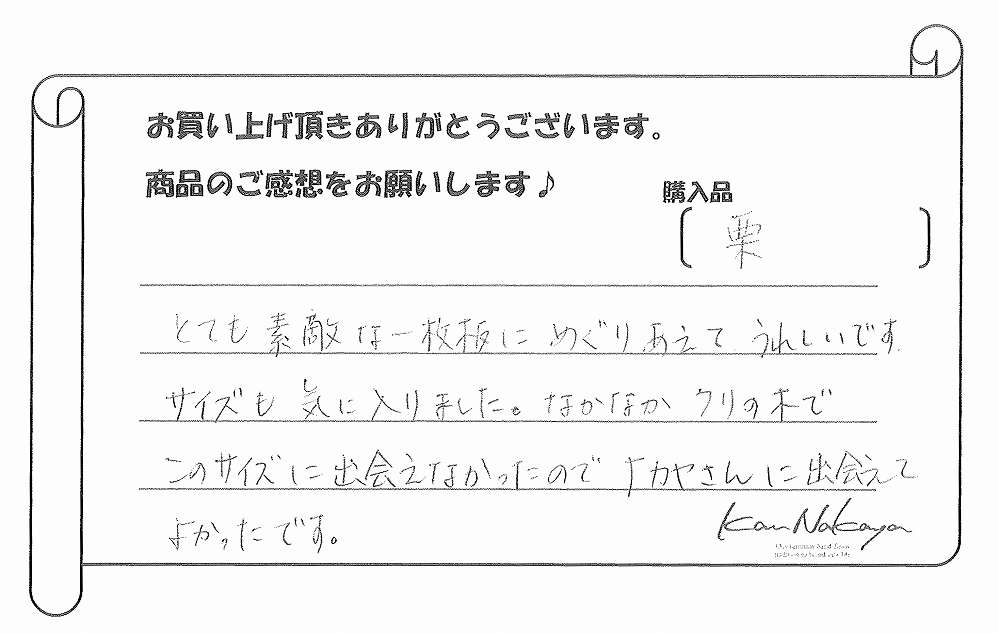 お買い上げ頂きありがとうございます。
商品のご感想をお願いします♪
購入品
栗
とても素敵な一枚板にめぐりあえてうれしいです.
サイズも気に入りました。なかなかクリの木で
このサイズに出会えなかったのでナカヤさんに出会えて
よかったです。
Kan Nakaya